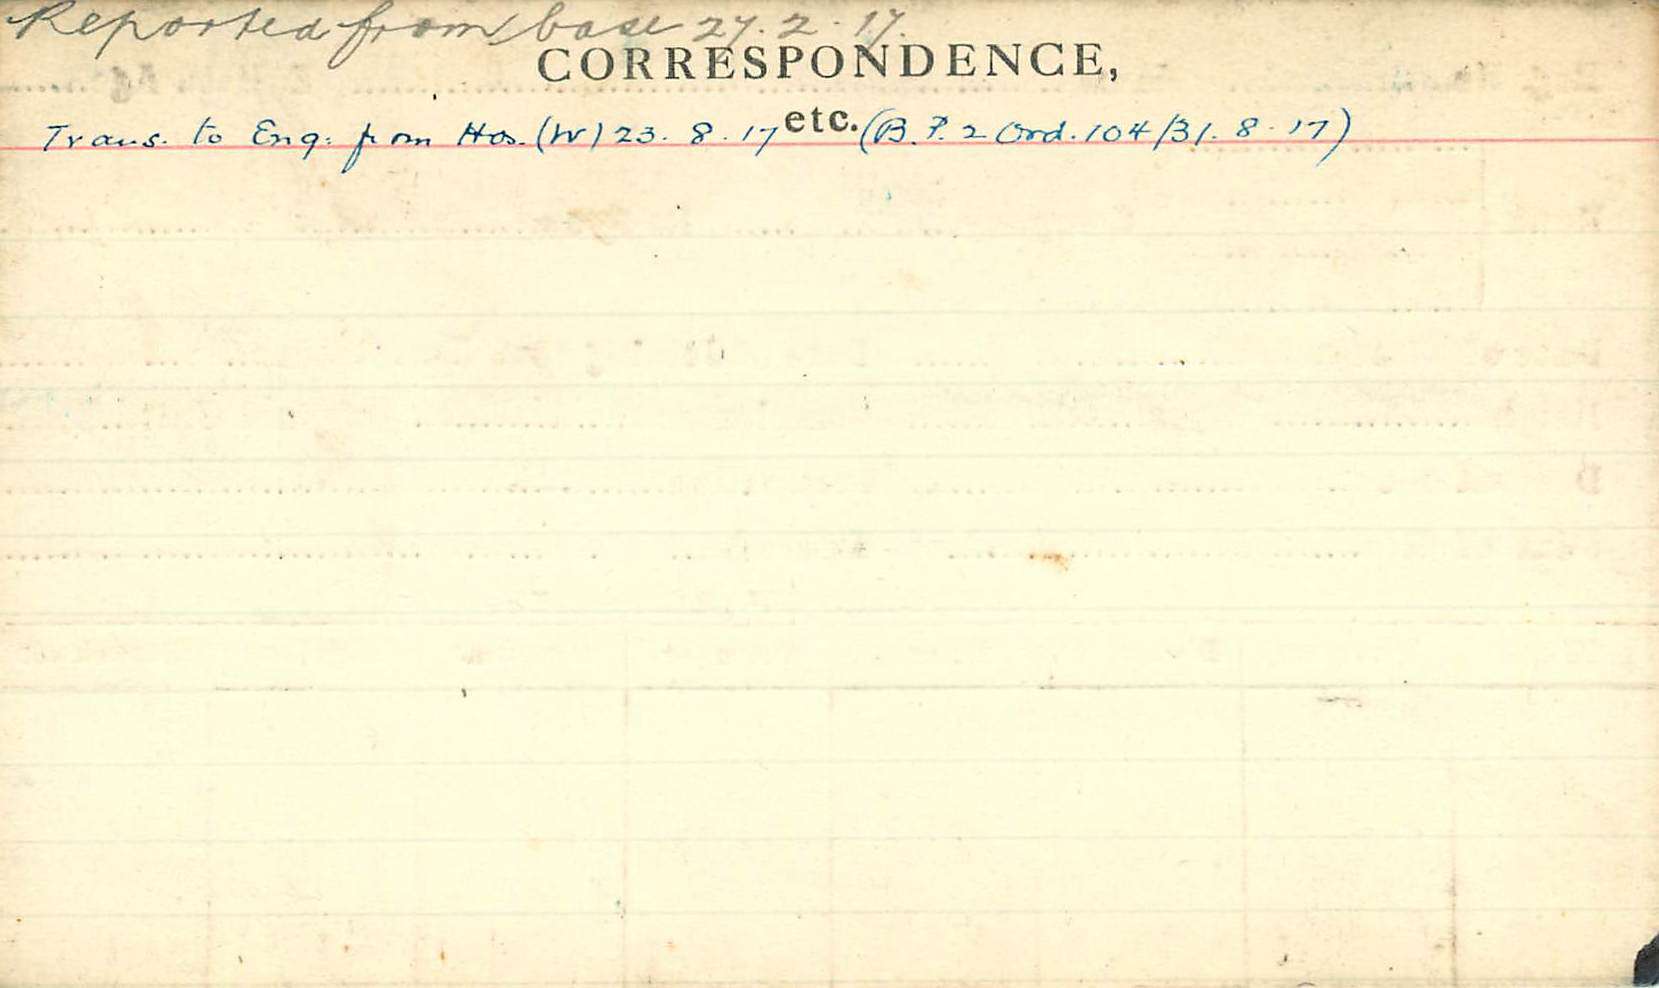 Reported from base 27.2.17.
CORRESPONDENCE,
etc.
Trans. to Eng. from Hos. (W) 23.8.17 (B.P. 2 Ord. 104/31.8.17)